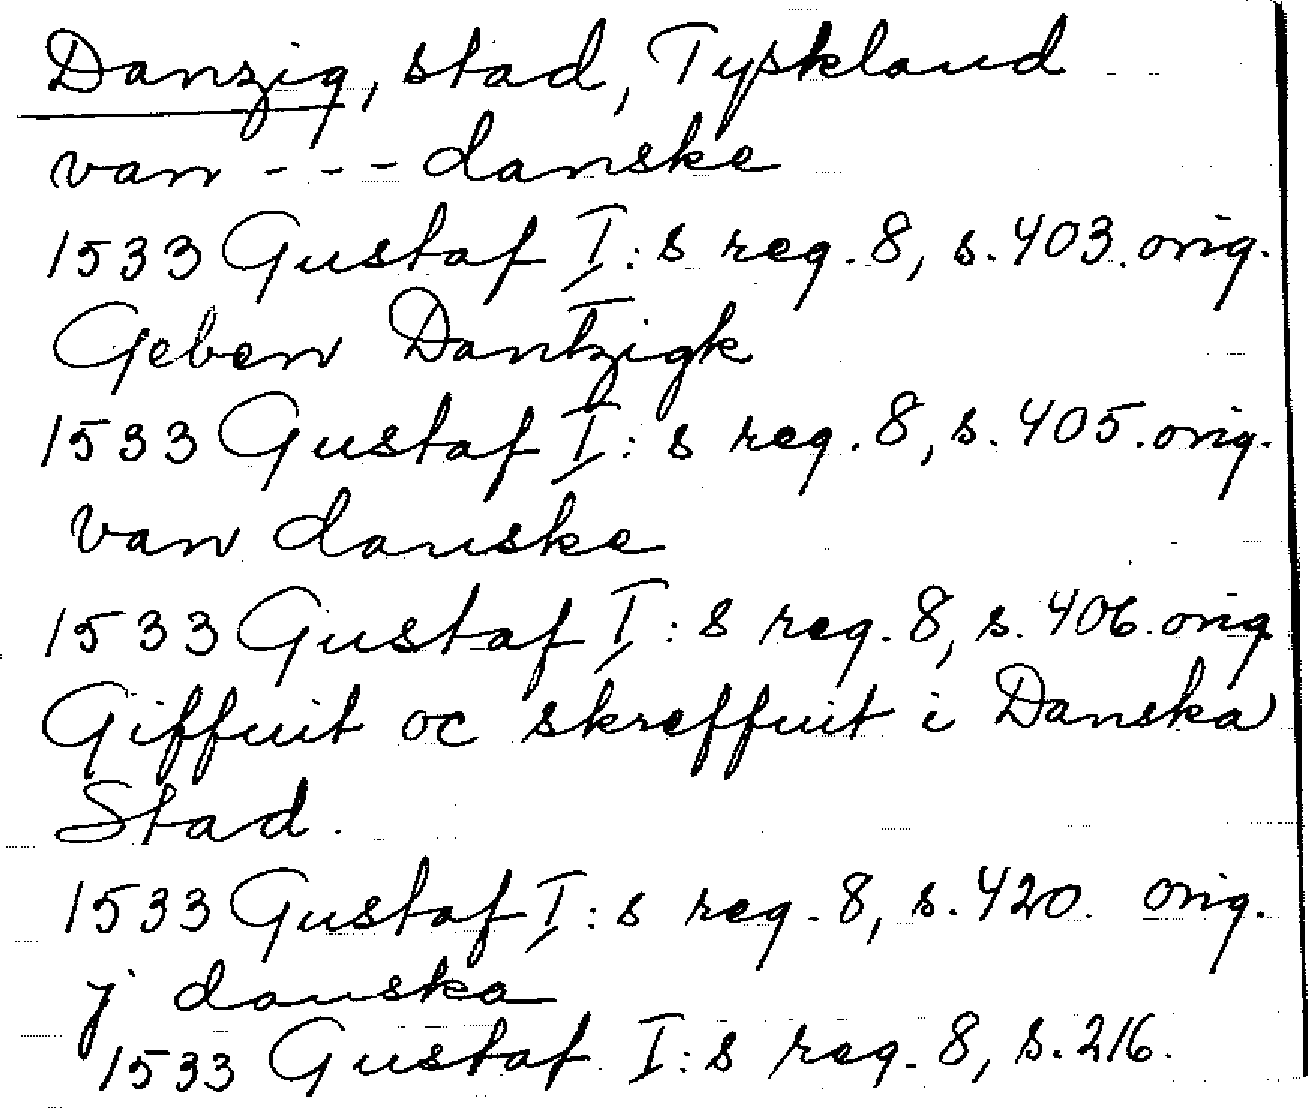 Danzig, stad, Tyskland
van - - - danske
1533 Gustaf I:s reg. 8, s. 403. orig.
Geben Dantzigk
1533 Gustaf I:s reg. 8, s. 405. orig.
van danske
1533 Gustaf I:s reg. 8, s. 406. orig
Giffuit oc skreffuit i Danska
Stad.
1533 Gustaf I:s reg. 8, s. 420. orig.
j danska
1533 Gustaf I:s reg. 8, s. 216.